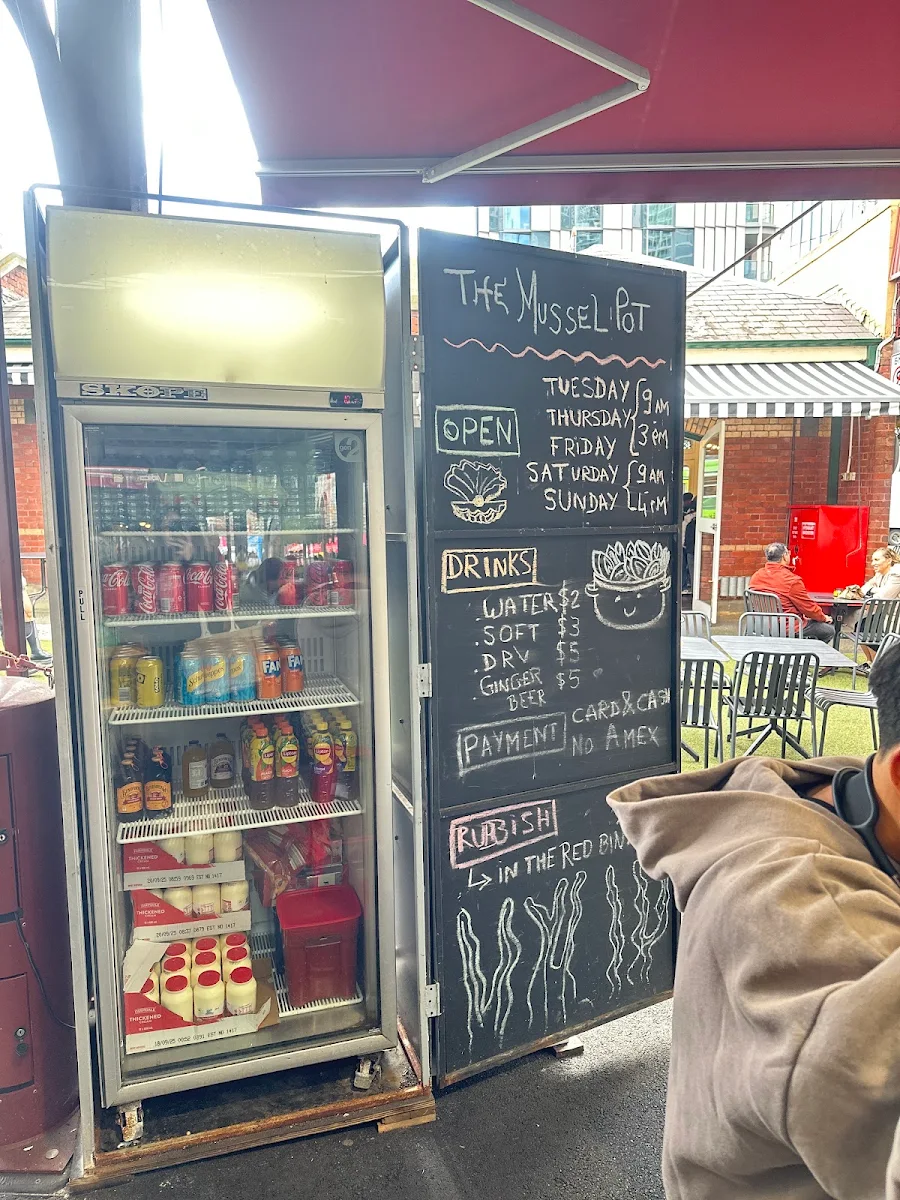 THE MUSSEL POT
OPEN
TUESDAY
THURSDAY
FRIDAY
9AM
3PM
SATURDAY
SUNDAY
9AM
4PM
DRINKS
. WATER $2
. SOFT $3
. DRY $5
. GINGER BEER $5
PAYMENT
CARD & CASH
NO AMEX
RUBBISH
IN THE RED BIN
SKOPE
PULL
Coca-Cola
Schweppes
FAN
FAN
Lipton
THICKENED
THICKENED
THICKENED